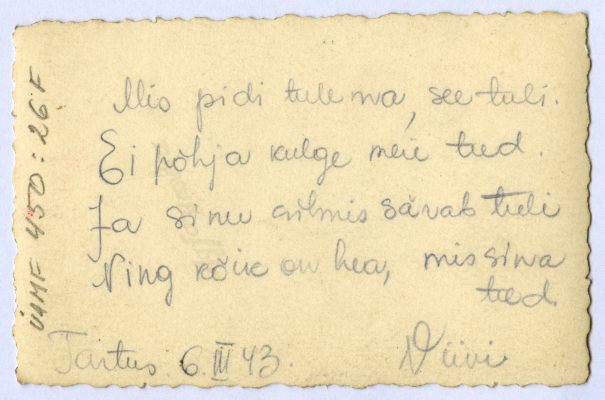 Mis pidi tulema, see tuli.
Ei põhja kulge meie teed.
Ja sinu silmis särab tuli
Ning kõik on hea, mis sina
teed.
Tartus 6. III 43. Viivi
ÜAMF 450:26 F